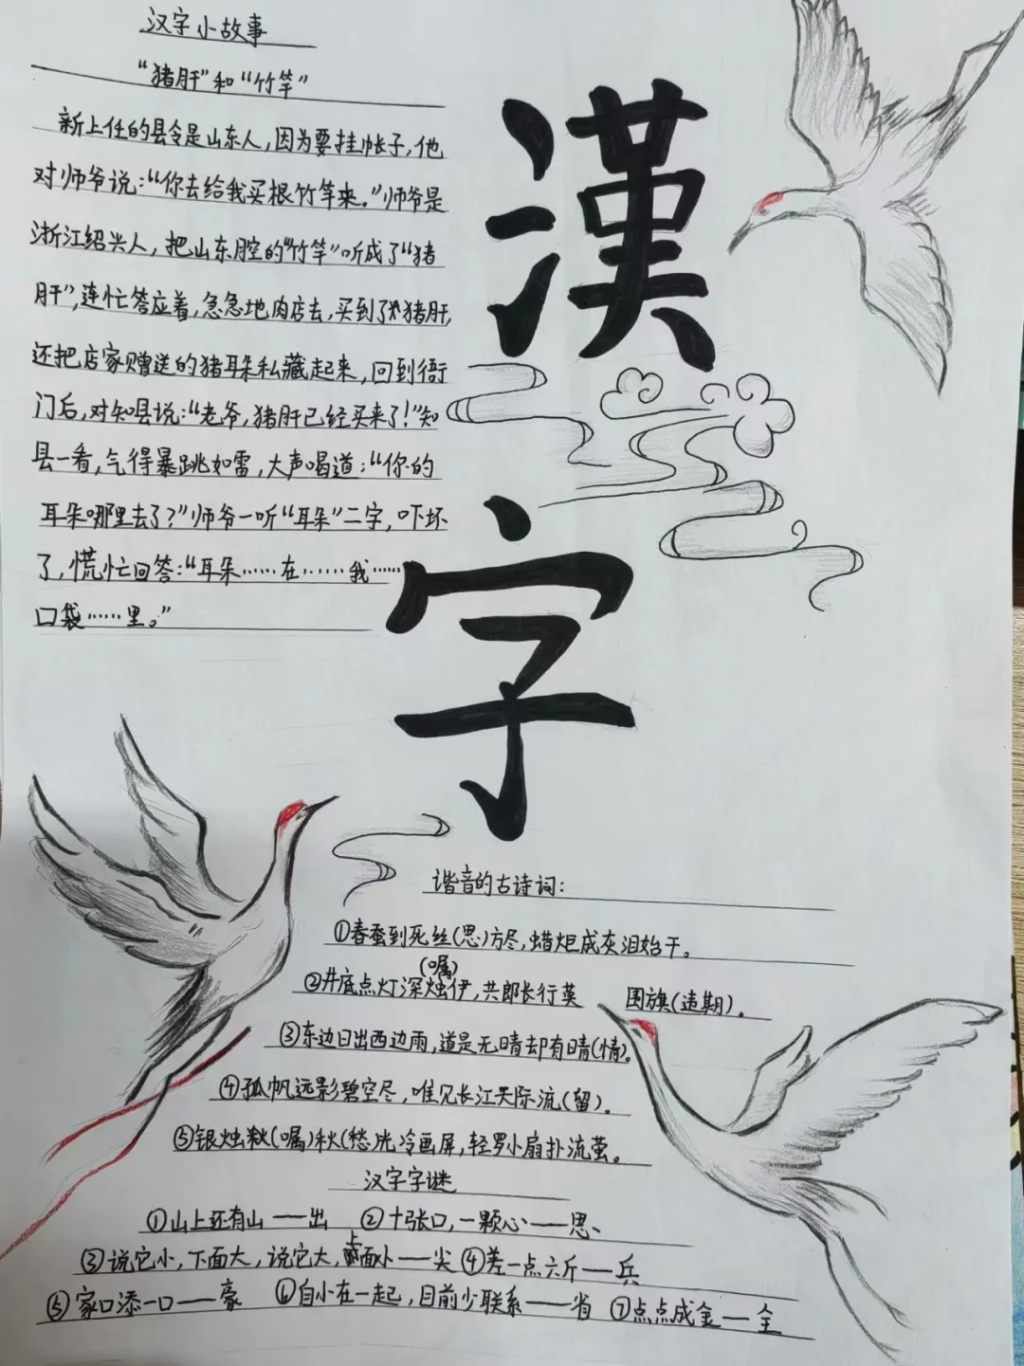 汉字小故事
“猪肝”和“竹竿”
新上任的县令是山东人,因为要挂帐子,他
对师爷说:“你去给我买根竹竿来。”师爷是
浙江绍兴人,把山东腔的“竹竿”听成了“猪
肝”,连忙答应着,急急地肉店去,买到了猪肝,
还把店家赠送的猪耳朵私藏起来,回到衙
门后,对知县说:“老爷,猪肝已经买来了!”知
县一看,气得暴跳如雷,大声喝道:“你的
耳朵哪里去了?”师爷一听“耳朵”二字,吓坏
了,慌忙回答:“耳朵……在……我……
口袋……里。”
漢
字
谐音的古诗词:
①春蚕到死丝(思)方尽,蜡炬成灰泪始干。
②井底点灯深烛(嘱)伊,共郎长行莫 围旗(违期)。
③东边日出西边雨,道是无晴却有晴(情)。
④孤帆远影碧空尽,唯见长江天际流(留)。
⑤银烛秋(嘱)秋(愁)光冷画屏,轻罗小扇扑流萤。
汉字字谜
①山上还有山——出 ②十张口,一颗心——思
③说它小,下面大,说它大,上面小——尖 ④差一点六斤——兵
⑤家口添一口——豪 ⑥自小在一起,目前少联系——省 ⑦点点成金——全